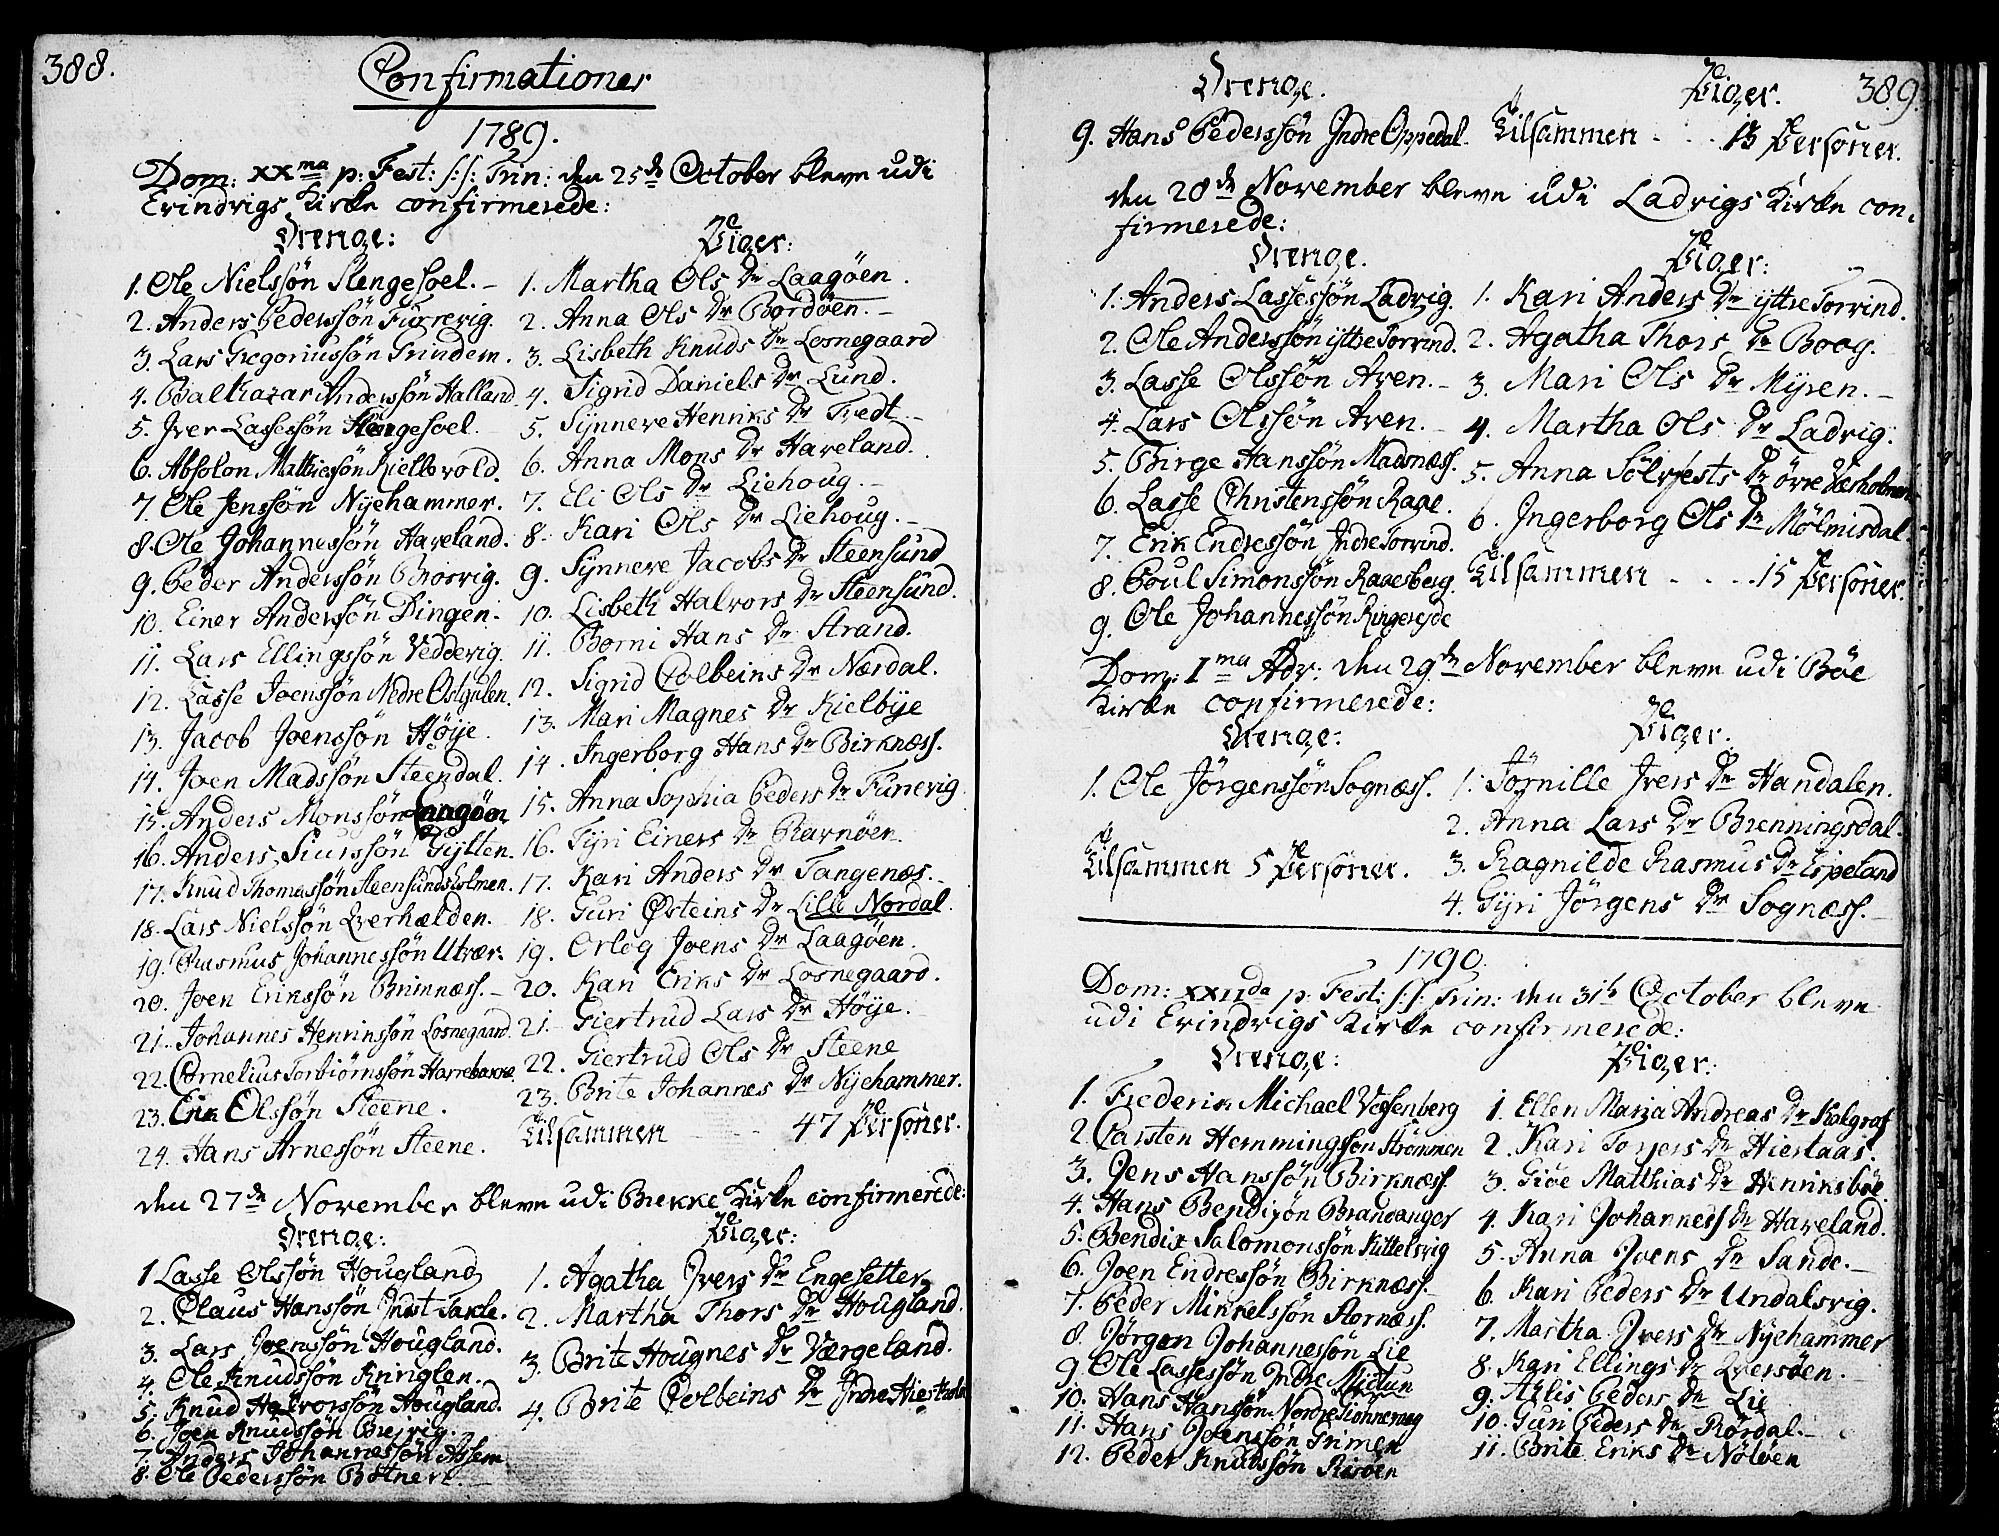 388.
Confirmationer
1789.
Dom: XXma p: Fest: S: S: Trin: den 25de October bleve udi
Evindvigs Kirke confirmerede:
Drenge:
1. Ole Nielssön Slengesoel.
2. Anders Pederssön Furrevig.
3. Lars Gregoriussön Grindem.
4. Balthazar Anderssön Halland
5. Iver Lassessön Slengesoel.
6. Absolon Mathiessön Kiellevold.
7. Ole Jenssön Nÿehammer.
8. Ole Johannessön Haveland.
9. Peder Anderssön Brosvig.
10. Einer Anderssön Dingen.
11. Lars Ellingssön Veddevig.
12. Lasse Joenssön Nedre Ostgulen.
13. Jacob Joenssön Höije.
14. Joen Madssön Steendal.
15. Anders Monssön Laagöen
16. Anders Siurssön Gÿlten.
17. Knud Thomassön Steensundsholmen.
18. Lars Nielssön Qverhælden.
19. Rasmus Johannessön Utvær.
20. Joen Erikssön Brimnæss.
21. Johannes Henrikssön Losnegaard.
22. Cornelius Torbiörnssön Havrebakke.
23. Erik Olssön Steene.
24. Hans Arnessön Steene.
Piger:
1. Martha Ols Dr Laagöen.
2. Anna Ols Dr Bordöen.
3. Lisbeth Knuds Dr Losnegaard
4. Sigrid Daniels Dr Lund.
5. Sÿnneve Henriks Dr Tvedt
6. Anna Mons Dr Haveland.
7. Eli Ols Dr Liehoug.
8. Kari Ols Dr Liehoug.
9. Sÿnneve Jacobs Dr Steensund
10. Lisbeth Halvors Dr Steensund.
11. Borni Hans Dr Strand.
12. Sigrid Colbeins Dr Nærdal.
13. Mari Magnes Dr Kielbÿe
14. Ingerborg Hans Dr Birknæss.
15. Anna Sophia Peders Dr Furevig
16. Tÿri Einers Dr Ravnöen.
17. Kari Anders Dr Tangenæs.
18. Guri Østeins Dr Lille Nordal.
19. Orlög Joens Dr Laagöen.
20. Kari Eriks Dr Losnegaard.
21. Giertrud Lars Dr Höÿe.
22. Giertrud Ols Dr Steene
23. Brite Johannes Dr Nÿehammer.
Tilsammen 47 Personer.
den 27de November bleve udi Brekke Kirke confirmerede:
Drenge:
1. Lasse Olssön Hougland
2. Claus Hanssön Indst Takle.
3. Lars Joenssön Hougland.
4. Ole Knudssön Knivglen.
5. Knud Halvorssön Hougland.
6. Joen Knudssön Breivig.
7. Anders Johannessön Assem
8. Ole Pederssön Botnen.
Piger:
1. Agatha Ivers Dr Engesetter
2. Martha Thors Dr Hougland.
3. Brite Hougnes Dr Værgeland.
4. Brite Colbeins Dr Indre
389.
Drenge.
Piger.
9. Hans Pederssön Indre Oppedal.
Tilsammen 13 Personer.
den 28de November bleve udi Ladvigs Kirke con-
firmerede:
Drenge.
1. Anders Lassessön Ladvig.
2. Ole Anderssön ÿttre Torvind.
3. Lasse Olssön Aven.
4. Lars Olssön Aven.
5. Birge Hanssön Madsnæss.
6. Lasse Christenssön Raae.
7. Erik Endressön Indre Torvind.
8. Poul Simonssön Raaesberg.
9. Ole Johannessön Ringereide
Piger:
1. Kari Anders Dr ÿttre Torvind.
2. Agatha Thors Dr Boog.
3. Mari Ols Dr Mÿren.
4. Martha Ols Dr Ladvig.
5. Anna Sölvfests Dr övre Væsholmen
6. Ingerborg Ols Dr Mölmisdal.
Tilsammen 15 Personer.
Dom: Ima Adv: den 29de November bleve udi Böe
Kirke confirmerede:
Drenge:
1. Ole Jörgenssön Sognæss.
Tilsammen 5 Personer.
Piger.
1. Sögnille Ivers Dr Handalen.
2. Anna Lars Dr Brenningsdal.
3. Ragnilde Rasmus Dr Espeland
4. Gÿri Jörgens Dr Sognæss.
1790.
Dom: XXIIda p: Fest: S: S: Trin: den 31te October bleve
udi Evindvigs Kirke confirmerede:
Drenge:
1. Frederik Michael Vesenberg
2. Carsten Hemmingssön Strömmen
3. Jens Hanssön Birknæss
4. Hans Bendixön Brandanger
5. Bendix Salomonssön Kittelsvig
6. Joen Endressön Birknæss.
7. Peder Mikkelssön Stornæss.
8. Jörgen Johannessön Lie
9. Ole Lassessön Indre Mÿetun
10. Hans Hanssön Nordre
11. Hans Joenssön Grimen
12. Peder Knudssön Risöen
Piger:
1. Ellen Maria Andreas Dr Kalgraf
2. Kari Torgers Dr Hiertaas.
3. Giöe Matthias Dr Henriksböe
4. Kari Johannes Dr Haveland.
5. Anna Joens Dr Sande.
6. Kari Peders Dr Undalsvig.
7. Martha Ivers Dr Nÿehammer
8. Kari Ellings Dr Qversöen.
9. Aplis Peders Dr Lie
10. Guri Peders Dr Rördal.
11. Brite Eriks Dr Nölöen